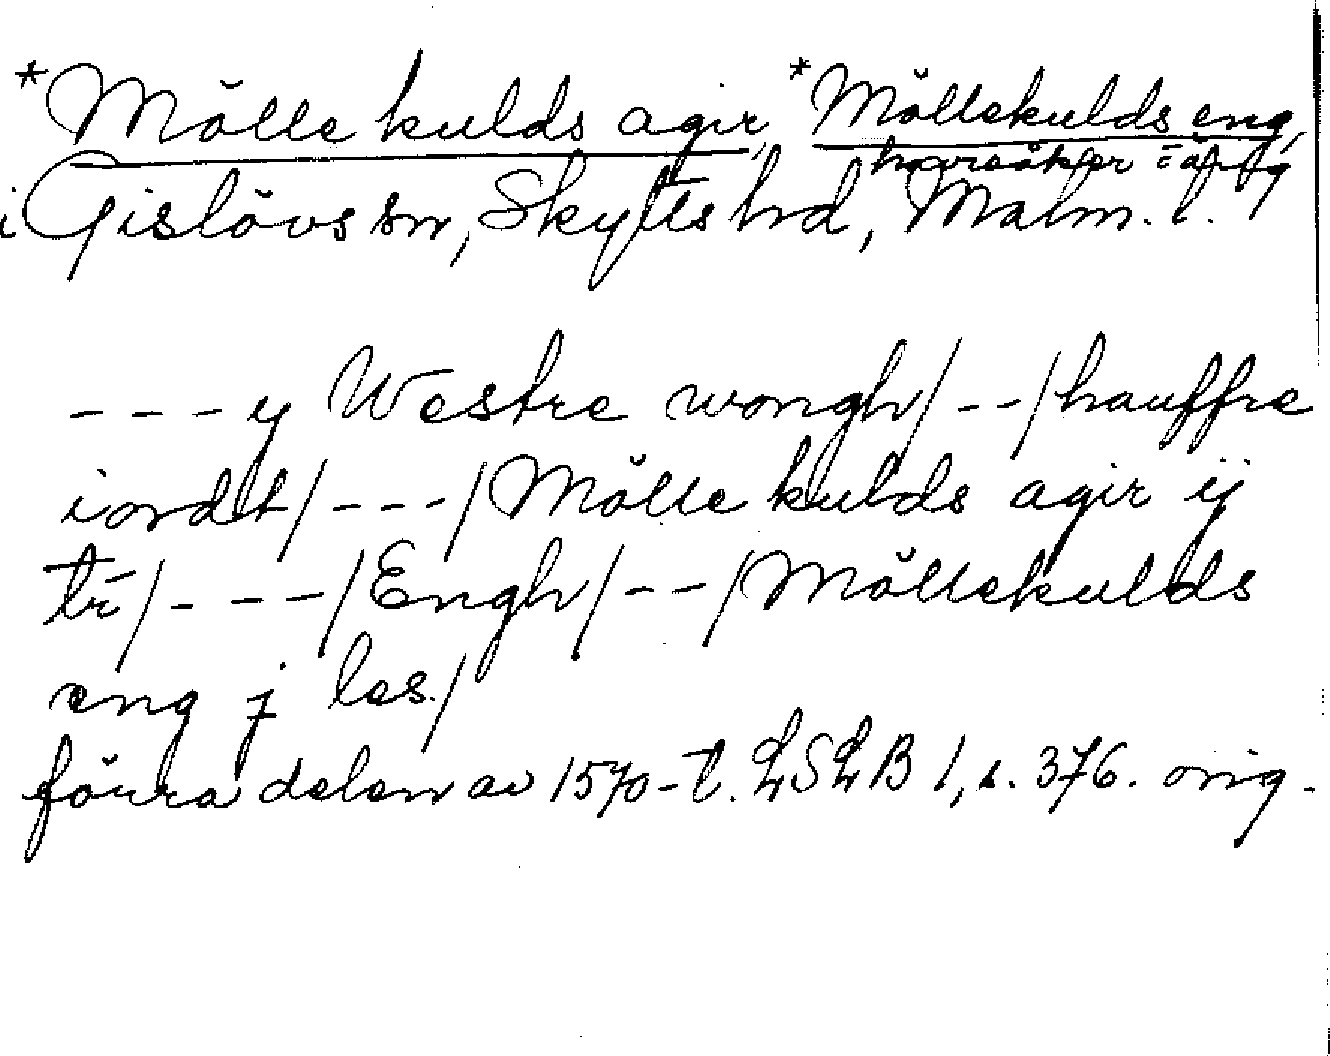 *Mölle kulds agir, *Möllekulds eng,
havreåker = äng
i Gislövs sn, Skytts hd, Malm. l.
- - - y Westre wongh/ - - /hauffre
iordt/ - - - /Mölle kulds agir ij
tr/ - - - /Engh/ - - /Möllekulds
eng j les./
förra delen av 1570-t. LSLB 1, s. 376. orig.